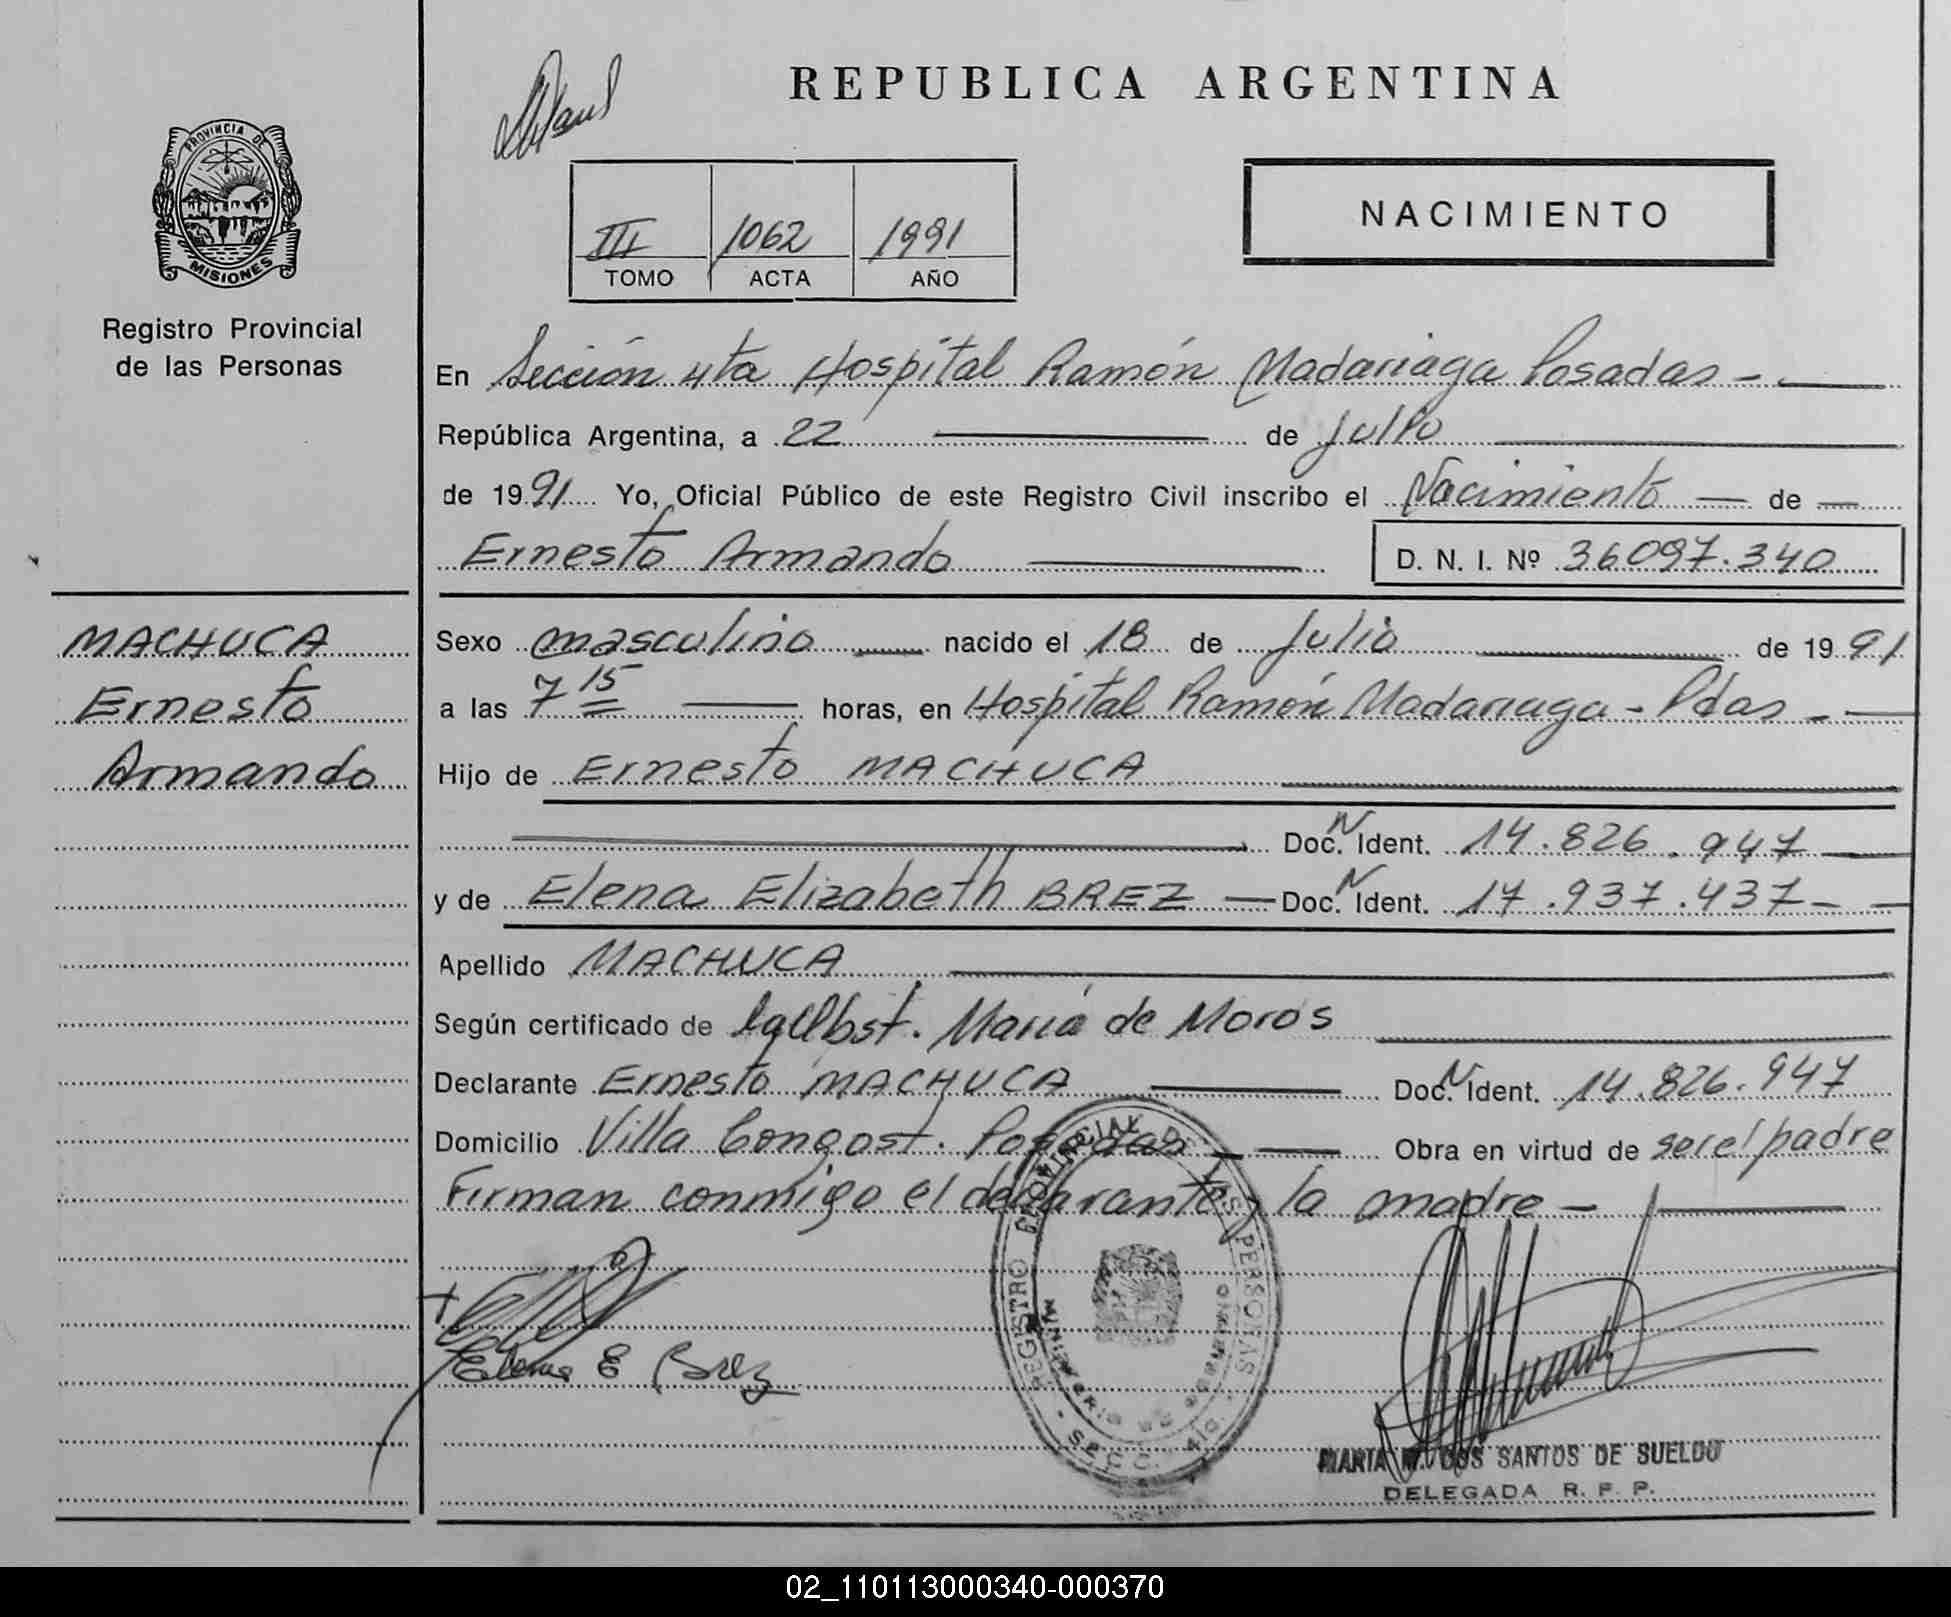 REPUBLICA ARGENTINA
PROVINCIA DE
MISIONES
Registro Provincial
de las Personas
III 1062 1991
TOMO ACTA AÑO
NACIMIENTO
En Sección 4ta Hospital Ramón Madariaga Posadas -
República Argentina, a 22 de Julio
de 1991 Yo, Oficial Público de este Registro Civil inscribo el Nacimiento de
Ernesto Armando D. N. I. Nº 36097.340
MACHUCA
Ernesto
Armando
Sexo masculino nacido el 18 de Julio de 1991
a las 7 15 horas, en Hospital Ramón Madariaga - Pdas -
Hijo de Ernesto MACHUCA
Doc. N Ident. 14.826.947
y de Elena Elizabeth BREZ Doc. N Ident. 17.937.437
Apellido MACHUCA
Según certificado de María de Moros
Declarante Ernesto MACHUCA Doc. N Ident. 14.826.947
Domicilio Villa Congost. Posadas Obra en virtud de ser el padre
Firman conmigo el declarante y la madre -
Elena E Brez
REGISTRO PROVINCIAL DE LAS PERSONAS
MINISTERIO DE GOBIERNO
SECC. 4ta.
MARIA M. DOS SANTOS DE SUELDO
DELEGADA R. P. P.
02_110113000340-000370